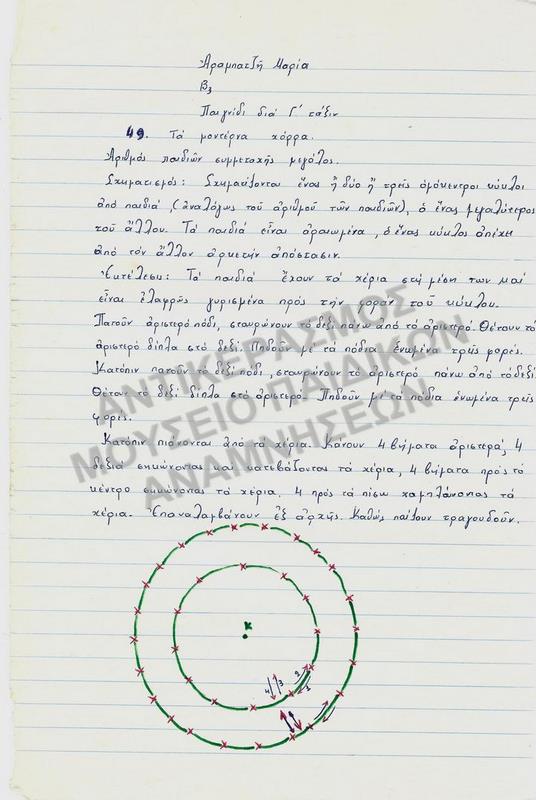 Ἀραμπατζῆ Μαρία
Β3
Παιγνίδι διά Γ' τάξιν
49. Τά μοντέρνα χόρρα.
Ἀριθμός παιδιῶν συμμετοχῆς μεγάλος.
Σχηματισμός: Σχηματίζονται ἕνας ἤ δύο ἤ τρεῖς ὁμόκεντροι κύκλοι
ἀπό παιδιά, (ἀναλόγως τοῦ ἀριθμοῦ τῶν παιδιῶν), ὁ ἕνας μεγαλύτερος
τοῦ ἄλλου. Τά παιδιά εἶναι ἀραιωμένα, ὁ ἕνας κύκλος ἀπέχει
ἀπό τόν ἄλλον ἀρκετήν ἀπόστασιν.
Ἐκτέλεσις: Τά παιδιά ἔχουν τά χέρια στή μέση των καί
εἶναι ἐλαφρῶς γυρισμένα πρός τήν φοράν τοῦ κύκλου.
Πατοῦν ἀριστερό πόδι, σταυρώνουν τό δεξί πάνω ἀπό τό ἀριστερό. Θέτουν τό
ἀριστερό δίπλα στό δεξί. Πηδοῦν μέ τά πόδια ἑνωμένα τρεῖς φορές.
Κατόπιν πατοῦν τό δεξί πόδι, σταυρώνουν τό ἀριστερό πάνω ἀπό τό δεξί.
Θέταν τό δεξί δίπλα στό ἀριστερό. Πηδοῦν μέ τά πόδια ἑνωμένα τρεῖς
φορές.
Κατόπιν πιάνονται ἀπό τά χέρια. Κάνουν 4 βήματα ἀριστερά, 4
δεξιά σηκώνοντας καί κατεβάζοντας τά χέρια, 4 βήματα πρός τό
κέντρο σηκώνοντας τά χέρια, 4 πρός τά πίσω χαμηλώνοντας τά
χέρια. Ἐπαναλαμβάνουν ἐξ ἀρχῆς. Καθώς παίζουν τραγουδοῦν.
Κ
4 3 2 1
ΑΝΤΙΚΕΡΑΣΜΟΣ
ΜΟΥΣΕΙΟ ΠΑΙΔΙΚΩΝ
ΑΝΑΜΝΗΣΕΩΝ